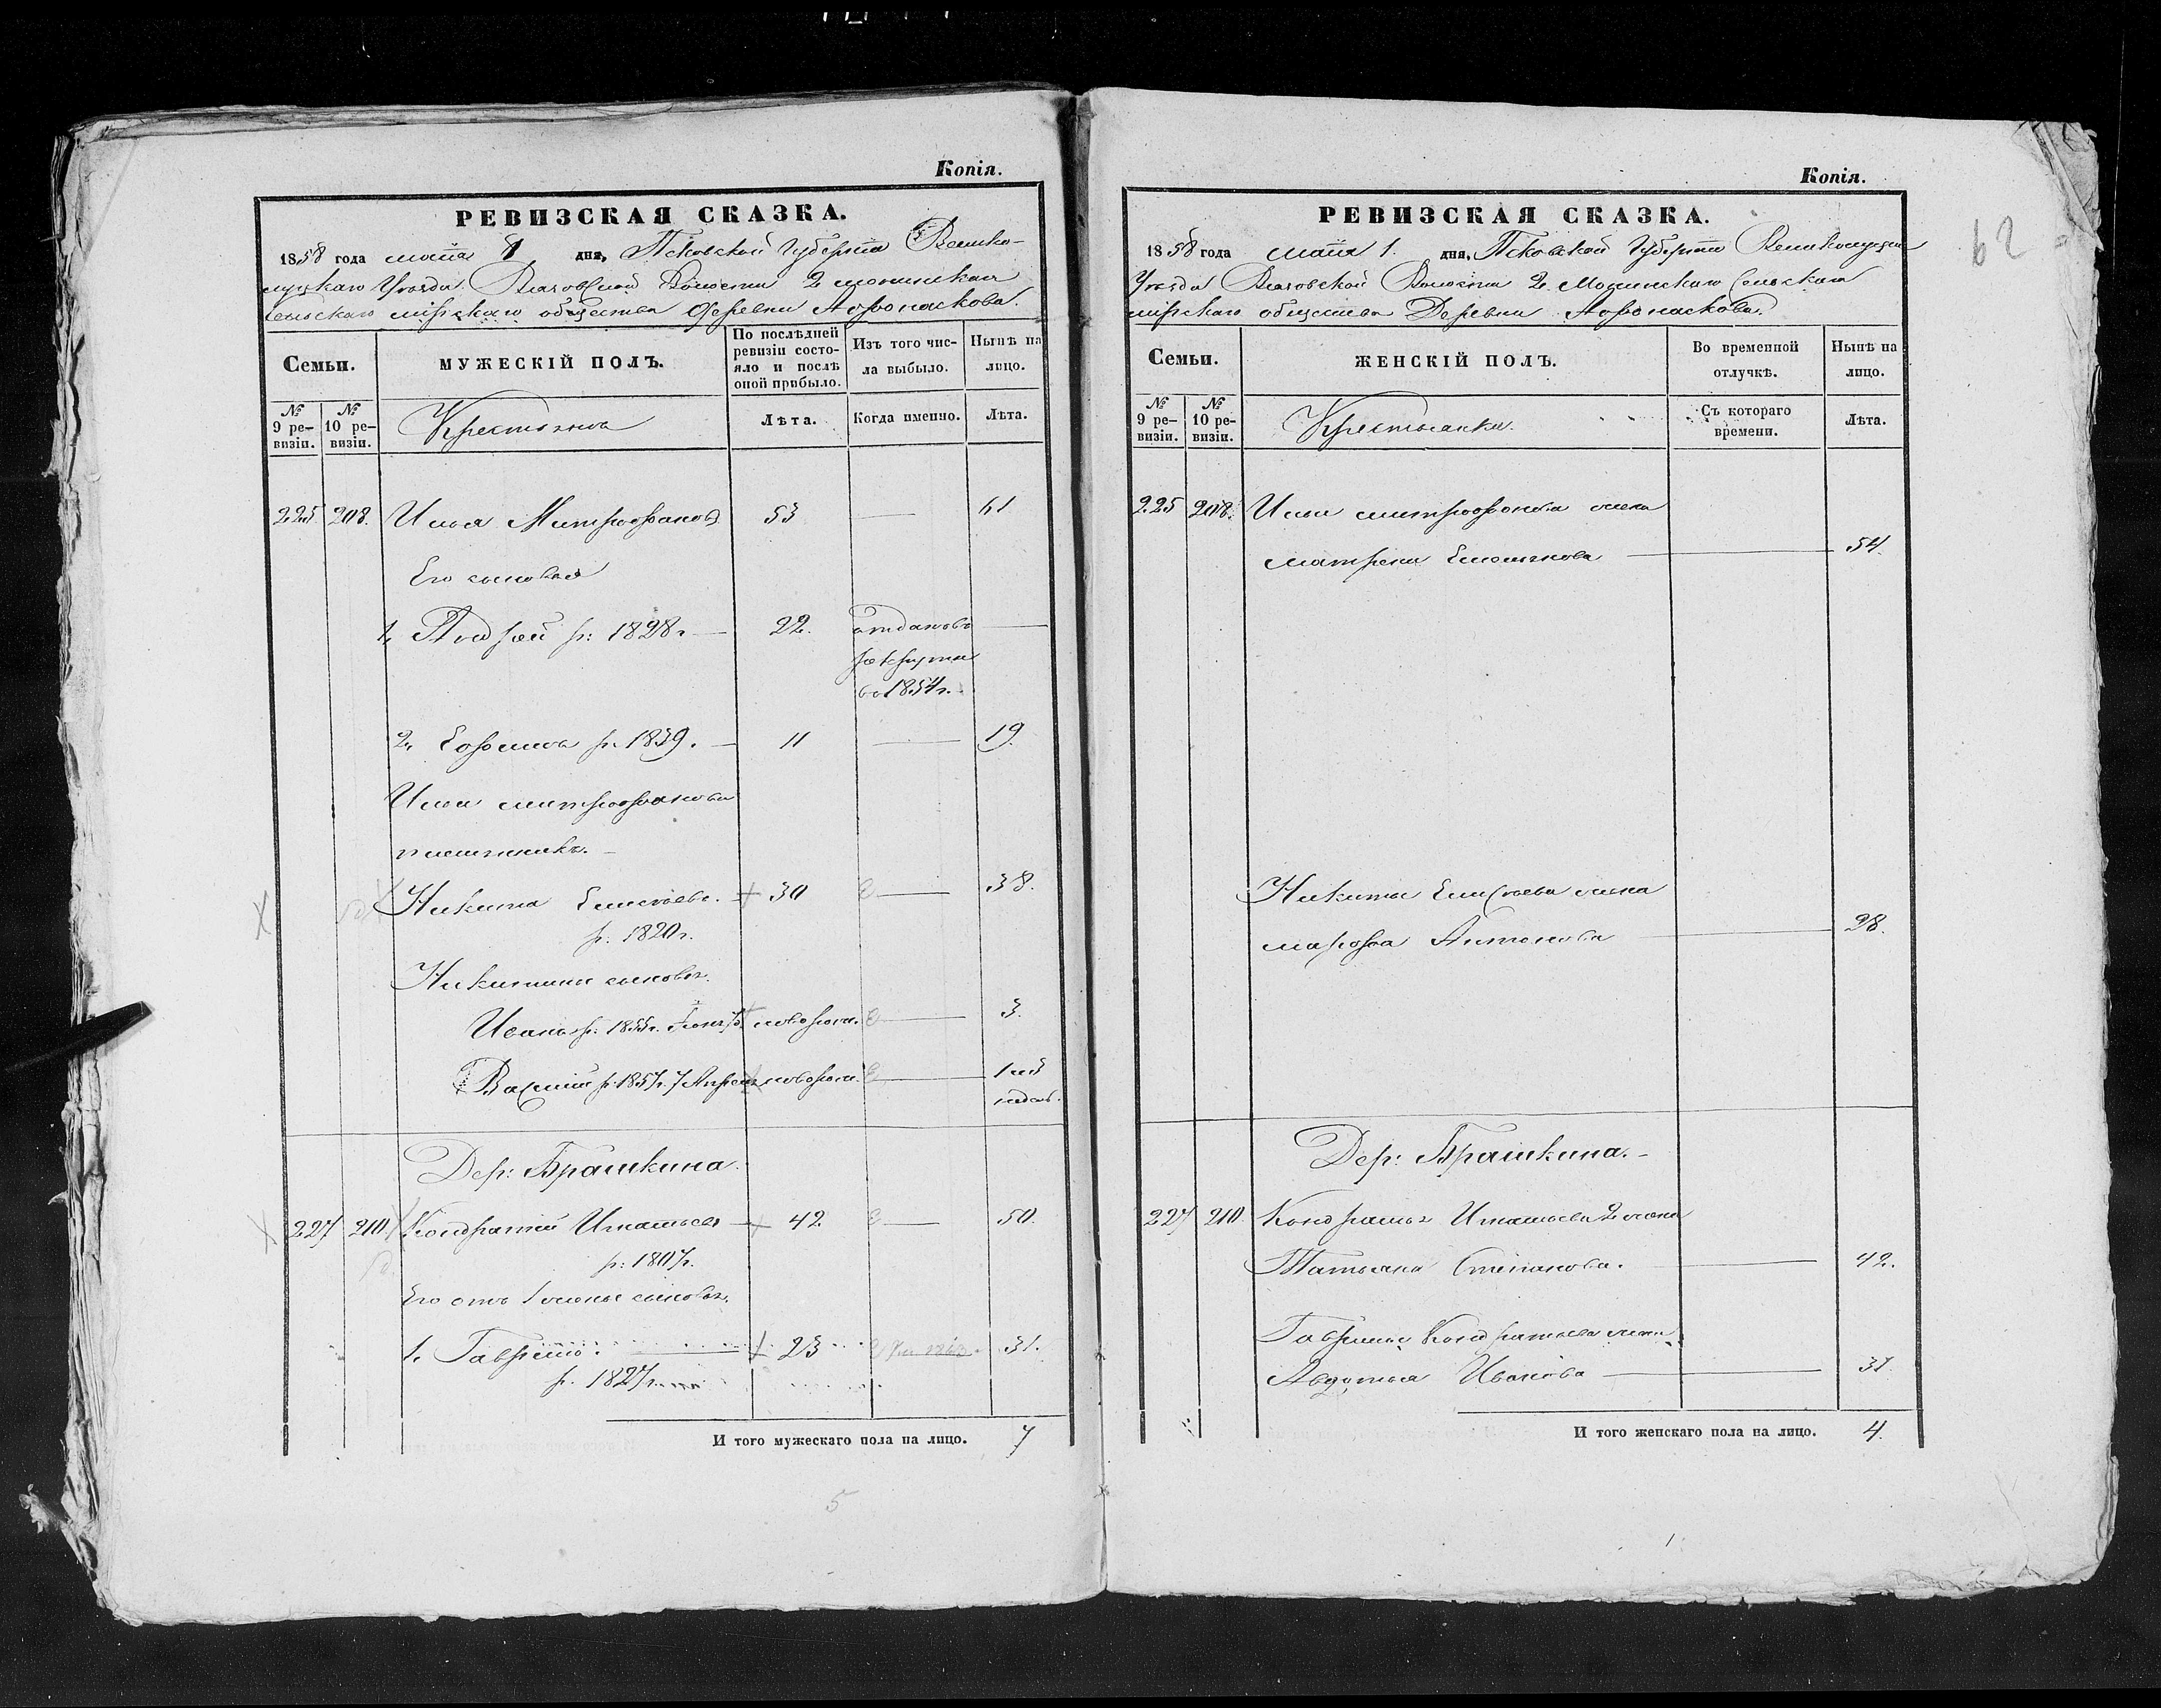 Копія.
РЕВИЗСКАЯ СКАЗКА.
1858 года маія 1 дня, Псковской Губерніи Велико-
луцкаго Уѣзда Волости 2
сельскаго мірскаго общества Деревни Афонаскова.
Семьи.
МУЖЕСКІЙ ПОЛЪ.
По послѣдней
ревизіи состо-
яло и послѣ
оной прибыло.
Изъ того чис-
ла выбыло.
Нынѣ на
лицо.
№
9 ре-
визіи.
№
10 ре-
визіи.
Крестьяне
Лѣта.
Когда именно.
Лѣта.
225 208. Илья Митрофановъ 53 — 61
Его сыновья
1, Андрей р: 1828 г — 22. отданъ въ —
рекруты
въ 1854 г.
2, Ефимъ р. 1839. — 11 — 19.
Ильи Митрофанова
племянникъ.
Никита Елисѣевъ. + 30 — 38.
р. 1820 г.
Никитины сыновья.
Иванъ р: 1855 г. новорож. — 3.
Василій р: 1857 г. 7 Апрѣля новорож. — 1 ой
недѣл.
Дер: Брашкина.
227 210 Кондратій Игнатьевъ + 42 — 50.
р: 1807 г.
Его отъ 1 жены сыновья.
1. Гаврило + 23 31.
р. 1827 г.
И того мужескаго пола на лицо. 7
5
Копія.
62
РЕВИЗСКАЯ СКАЗКА.
1858 года маія 1. дня, Псковской Губерніи Великолуцкаго
Уѣзда Волости 2. Сельскаго
мірскаго общества Деревни Афонаскова.
Семьи.
ЖЕНСКІЙ ПОЛЪ.
Во временной
отлучкѣ.
Нынѣ на
лицо.
№
9 ре-
визіи.
№
10 ре-
визіи.
Крестьянки.
Съ котораго
времени.
Лѣта.
225 208. Ильи Митрофонова жена
Матрена Емельянова — 54.
Никиты Елисѣева жена
Марфа Антонова — 28.
Дер: Брашкина. -
227 210. Кондратья Игнатьева 2 жена
Татьяна Степанова. — 42.
Гаврилы Кондратьева жена
Авдотья Иванова — 31
И того женскаго пола на лицо. 4.
1